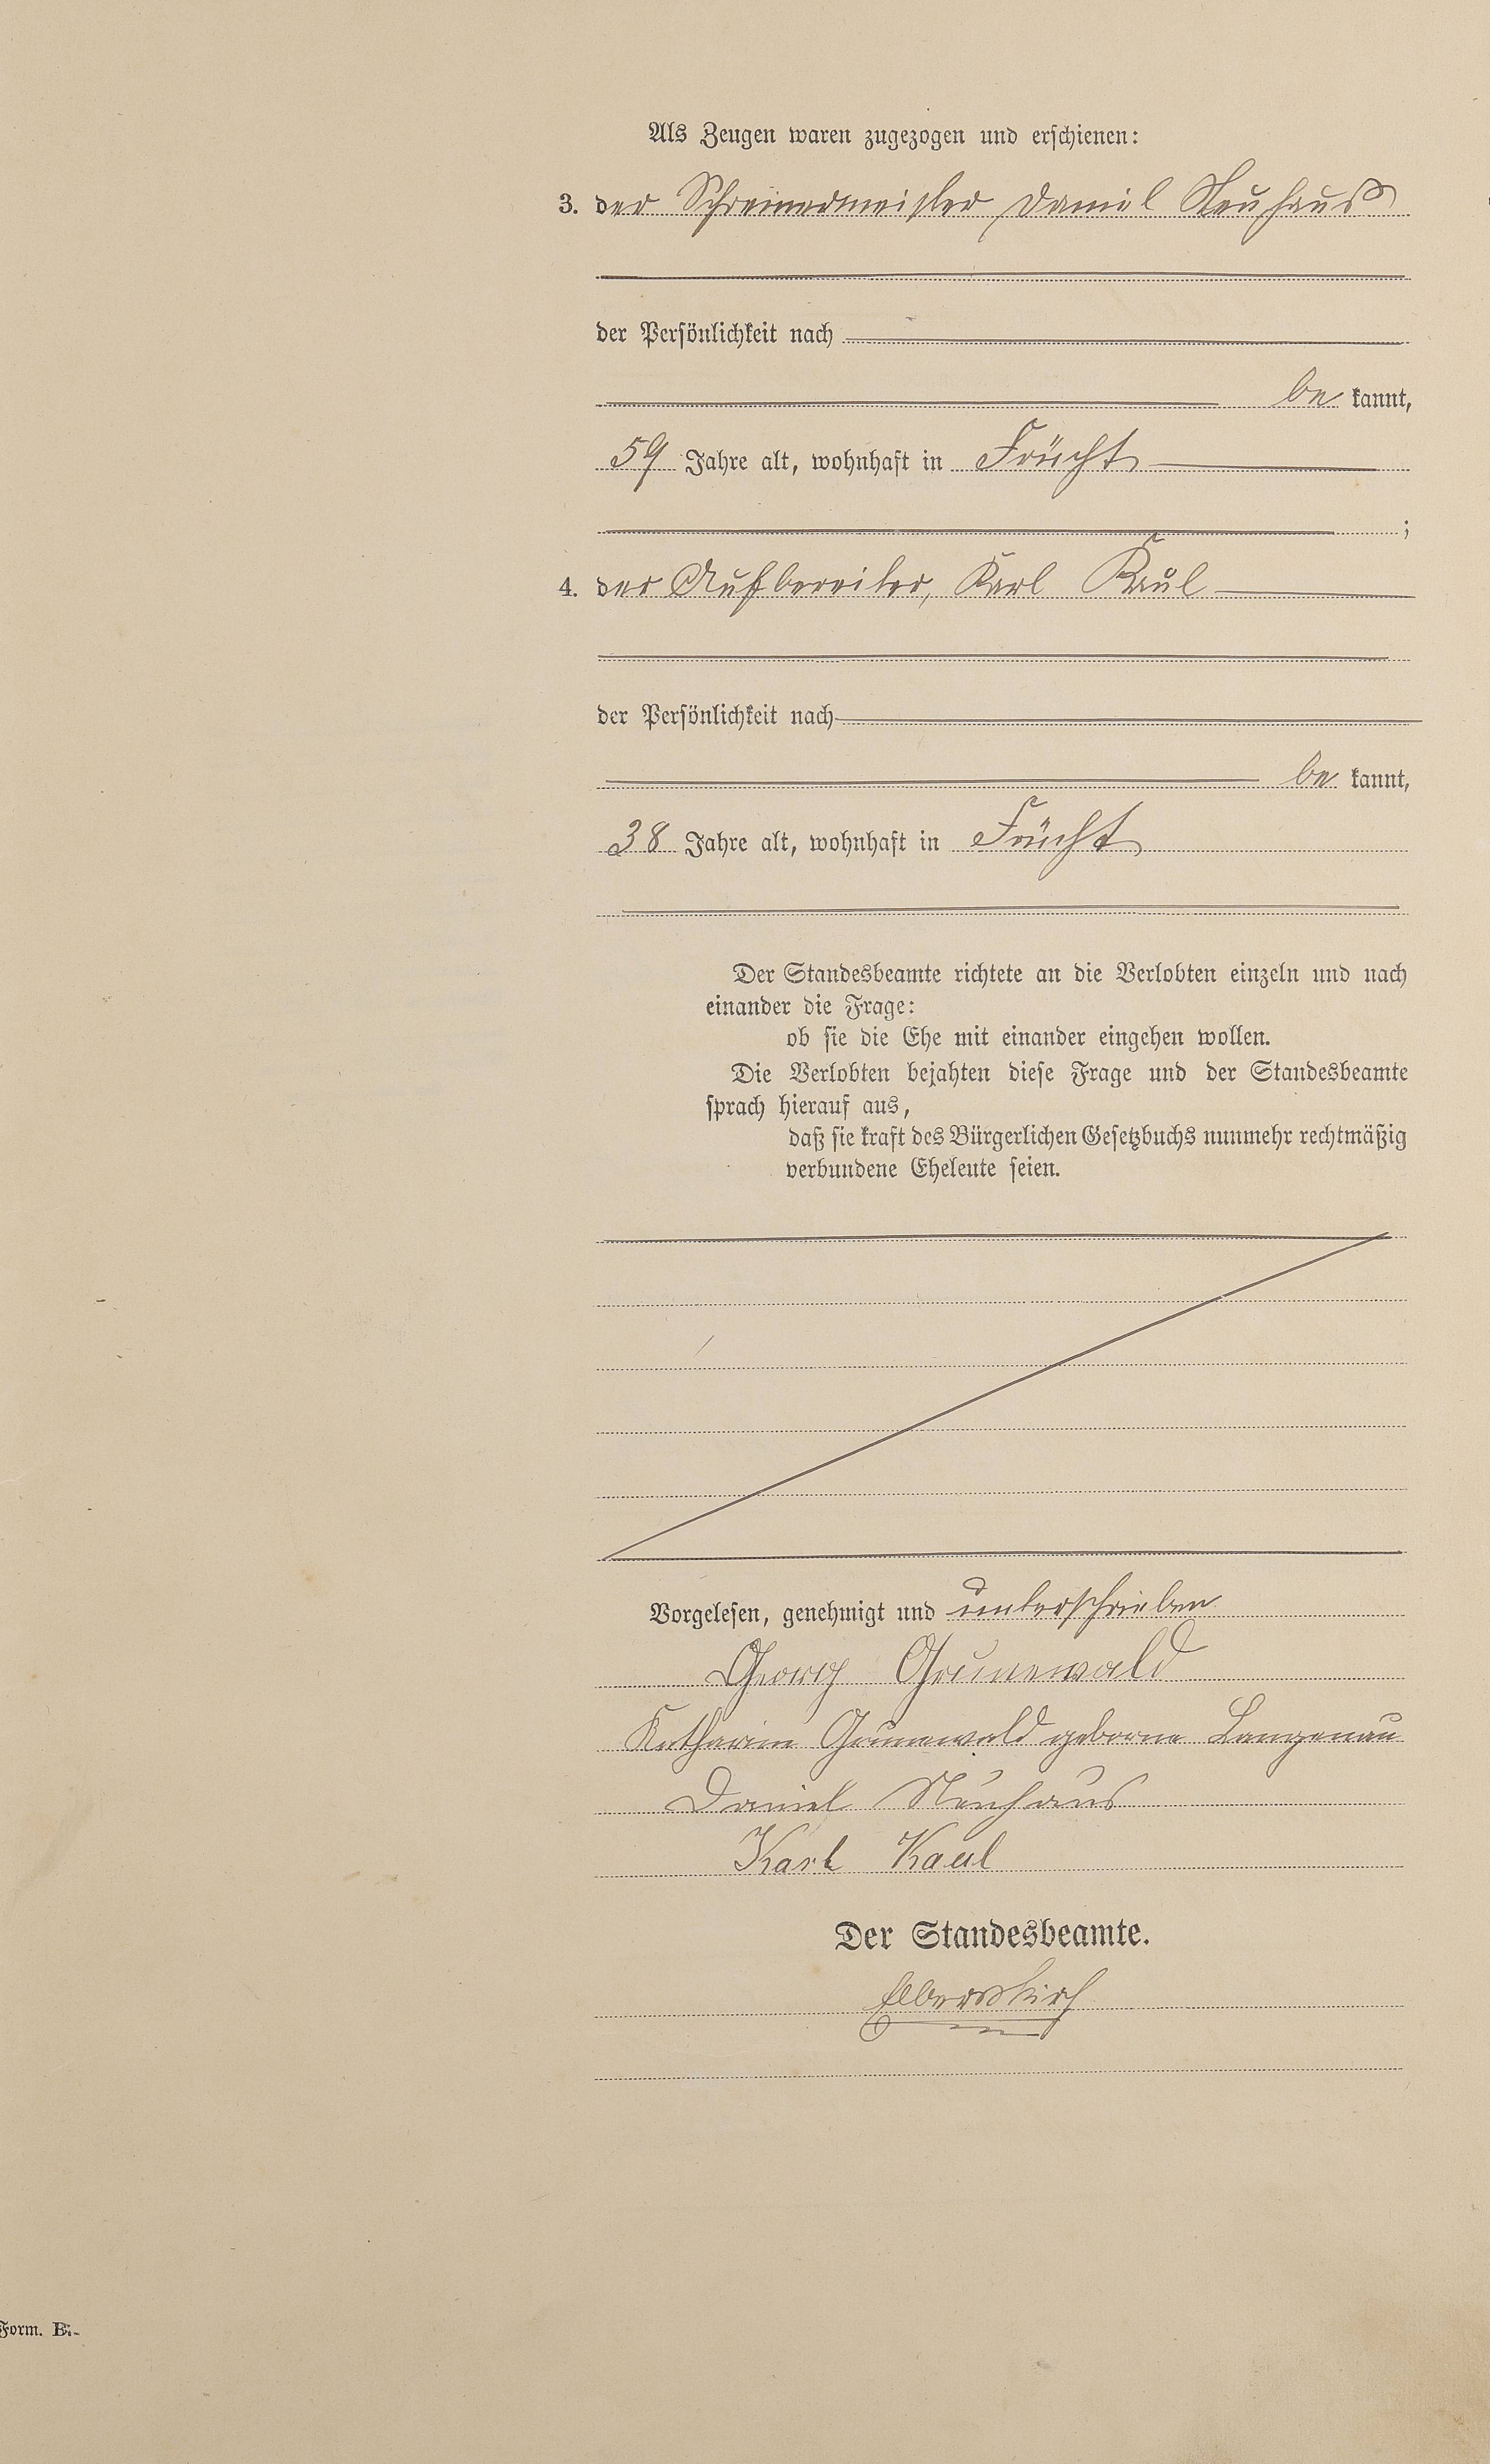 Als Zeugen waren zugezogen und erschienen:
3. der Schreinermeister Daniel Neuhaus
der Persönlichkeit nach
be kannt,
59 Jahre alt, wohnhaft in Frücht
;
4. der Aufbereiter, Karl Kaul
der Persönlichkeit nach
be kannt,
38 Jahre alt, wohnhaft in Frücht
Der Standesbeamte richtete an die Verlobten einzeln und nach
einander die Frage:
ob sie die Ehe mit einander eingehen wollen.
Die Verlobten bejahten diese Frage und der Standesbeamte
sprach hierauf aus,
daß sie kraft des Bürgerlichen Gesetzbuchs nunmehr rechtmäßig
verbundene Eheleute seien.
Vorgelesen, genehmigt und unterschrieben
Georg Grunewald
Katharine Grunewald geborne Langenau
Daniel Neuhaus
Karl Kaul
Der Standesbeamte.
Form. B.